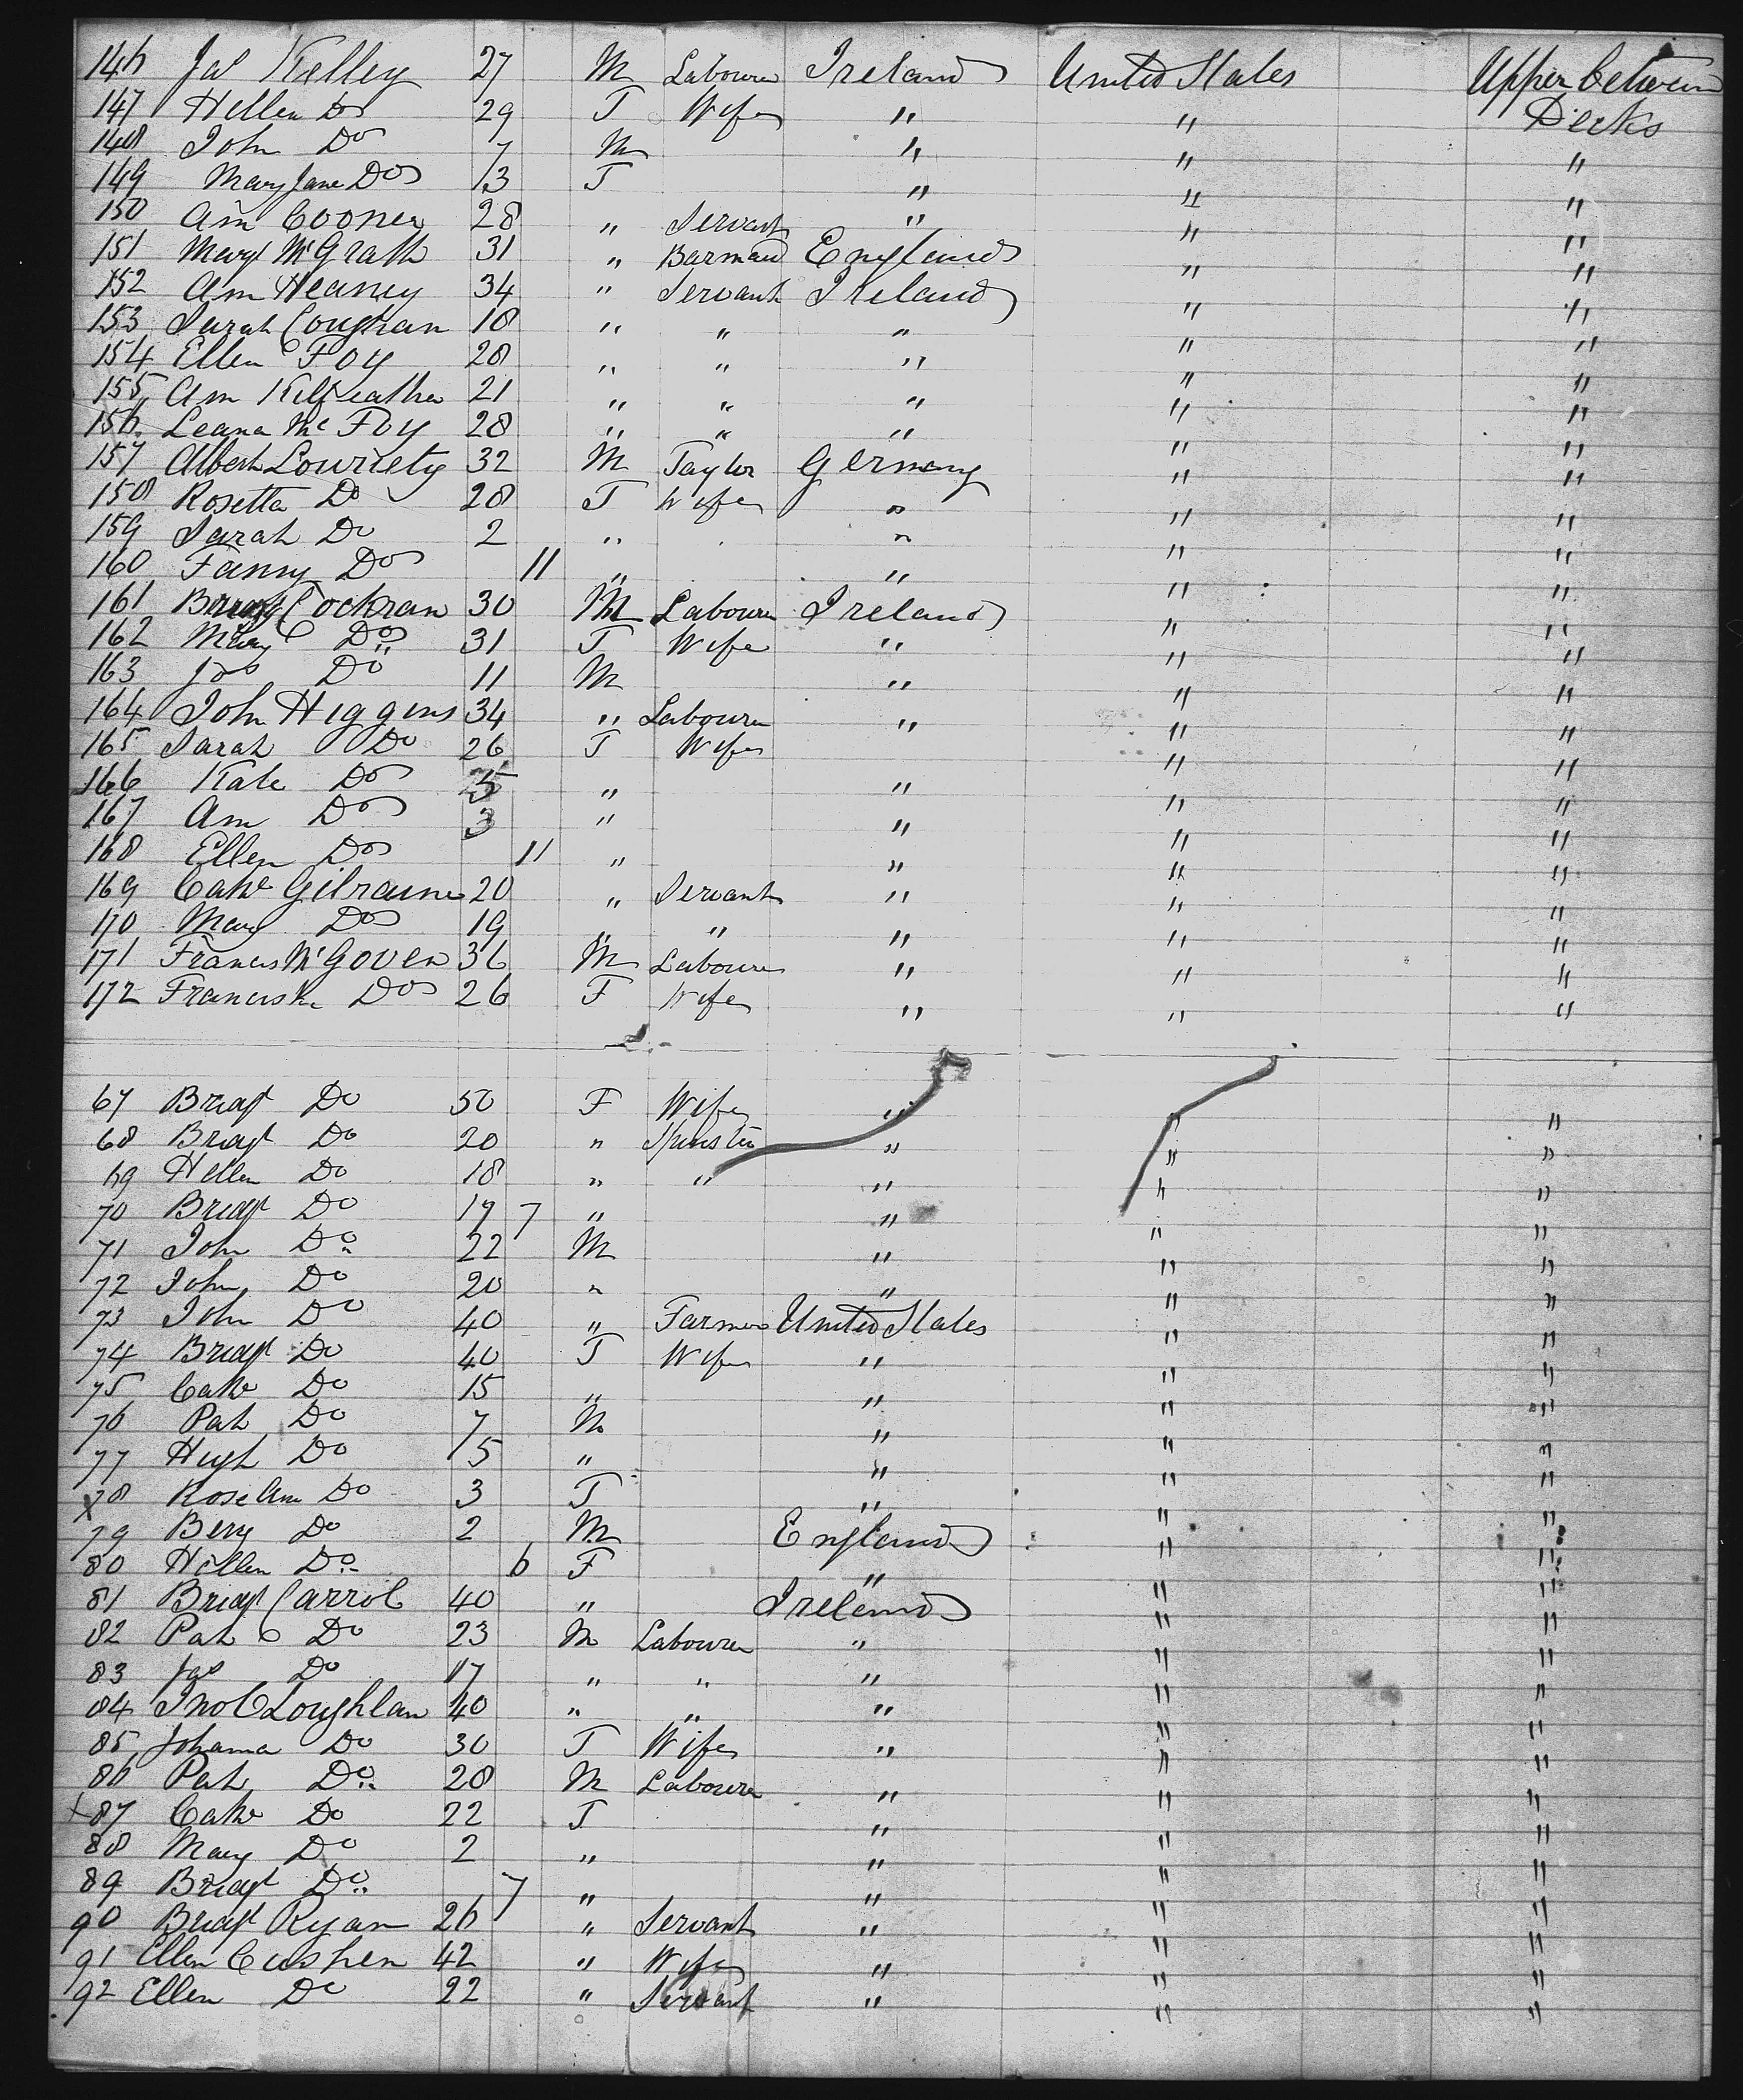 146 Jas Kelley 27 M Labourer Ireland United States Upper between
147 Hellen Do 29 F Wife " " Decks
148 John Do 7 M " " "
149 Mary Jane Do 13 F " " "
150 Ann Cooney 28 " Servant " " "
151 Mary McGrath 31 " Barmaid England " "
152 Ann Heaney 34 " Servant Ireland " "
153 Sarah Coughran 18 " " " " "
154 Ellen Foy 28 " " " " "
155 Ann Kilfeather 21 " " " " "
156 Leana Mc Foy 28 " " " " "
157 Albert Lowriety 32 M Taylor Germany " "
158 Rosetta Do 28 F Wife " " "
159 Sarah Do 2 " " " "
160 Fanny Do 11 " " " "
161 Cochran 30 M Labourer Ireland " "
162 Mary Do 31 F Wife " " "
163 Jas Do 11 M " " "
164 John Higgins 34 " Labourer " " "
165 Sarah Do 26 F Wife " "
166 Kate Do 5 " " " "
167 Ann Do 3 " " " "
168 Ellen Do 11 " " " "
169 Cath Gilraine 20 " Servant " " "
170 Mary Do 19 " " " " "
171 Francis McGoven 36 M Labourer " " "
172 Franciska Do 26 F Wife " " "
67 Bridgt Do 50 F Wife " " "
68 Bridgt Do 20 " Spinster " " "
69 Hellen Do 18 " " " " "
70 Bridgt Do 19 7 " " " "
71 John Do 22 M " " "
72 John Do 20 " " " "
73 John Do 40 " Farmer United States " "
74 Bridgt Do 40 F Wife " " "
75 Cath Do 15 " " " "
76 Pat Do 7 M " " "
77 Hugh Do 5 " " " "
78 Rose Ann Do 3 F " " "
79 Benj Do 2 M England " "
80 Hellen Do 6 F " " "
81 Bridgt Carrol 40 " Ireland " "
82 Pat Do 23 M Labourer " " "
83 Jas Do 17 " " " " "
84 Loughlan 40 " " " " "
85 Johanna Do 30 F Wife " " "
86 Pat Do 28 M Labourer " " "
+87 Cath Do 22 F " " "
88 Mary Do 2 " " " "
89 Bridgt Do 7 " " " "
90 Bridgt Ryan 26 " Servant " " "
91 Ellen Cushen 42 " Wife " " "
92 Ellen Do 22 " Servant " " "